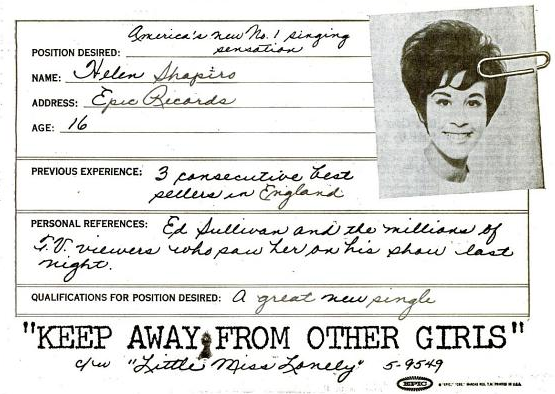 America's new No. 1 singing
POSITION DESIRED: sensation
NAME: Helen Shapiro
ADDRESS: Epic Records
AGE: 16
PREVIOUS EXPERIENCE: 3 consecutive best
sellers in England
PERSONAL REFERENCES: Ed Sullivan and the millions of
T.V. viewers who saw her on his show last
night.
QUALIFICATIONS FOR POSITION DESIRED: A great new single
"KEEP AWAY FROM OTHER GIRLS"
c/w "Little Miss Lonely" 5-9549
EPIC